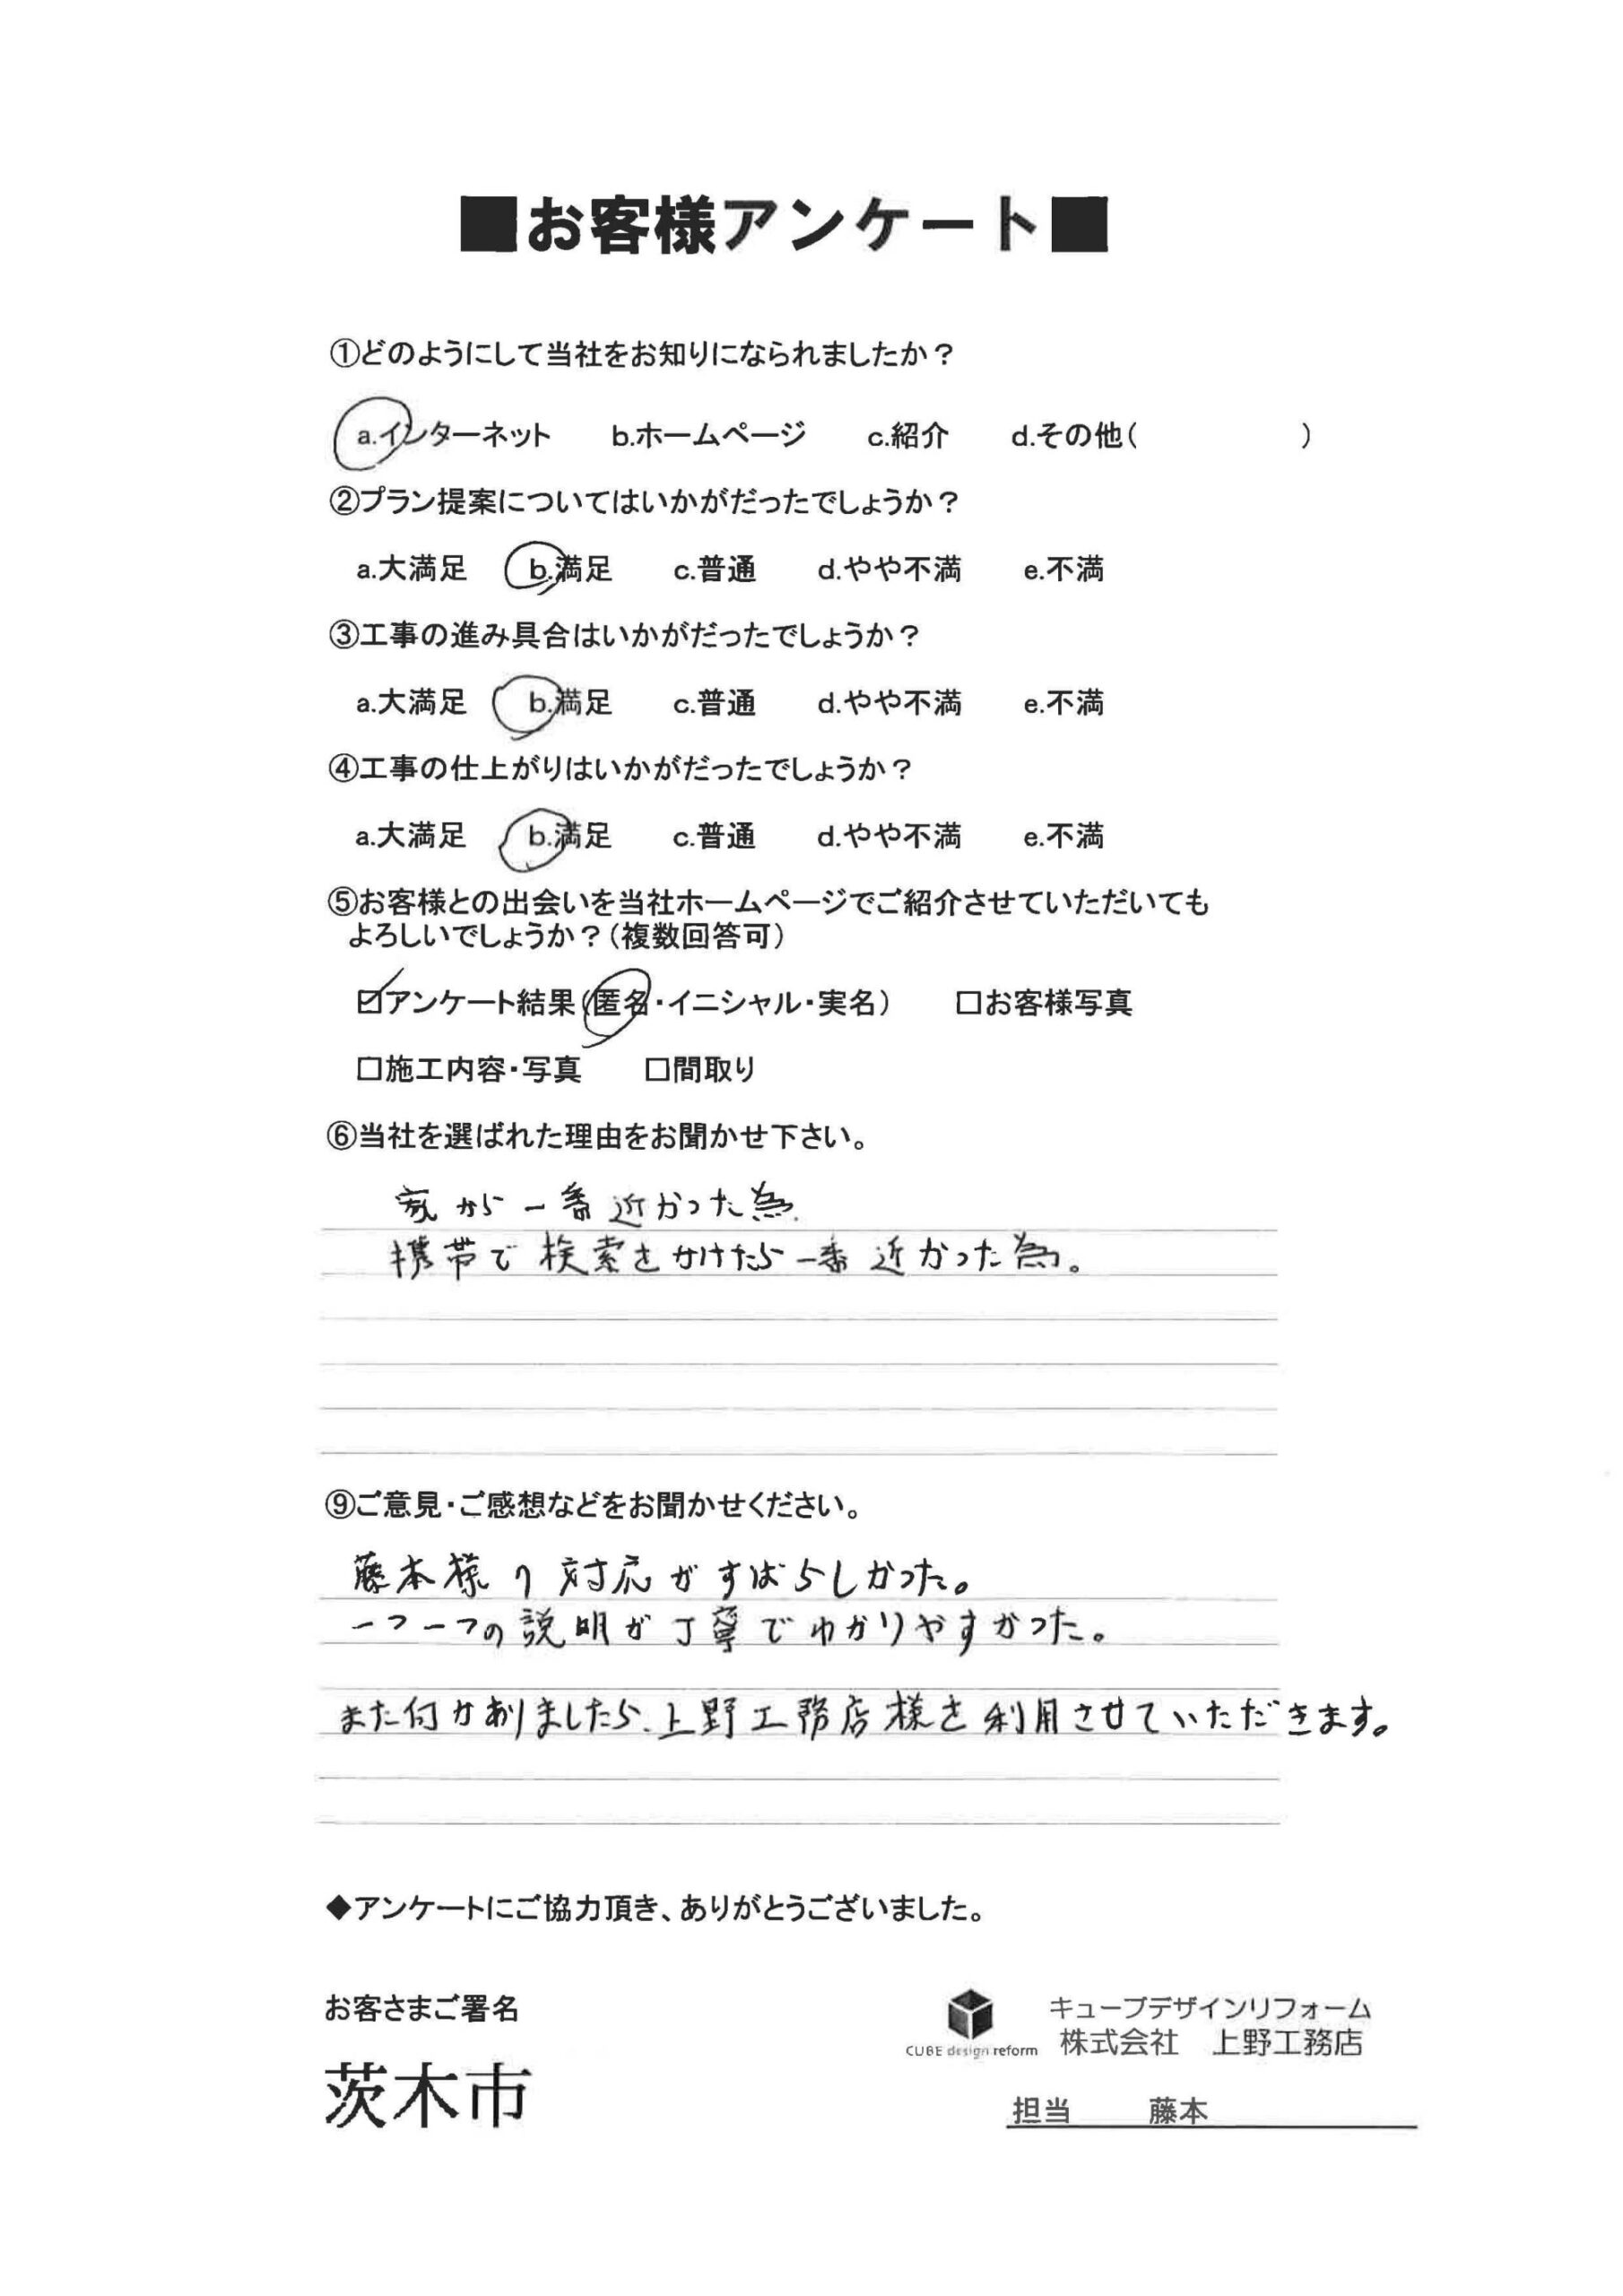 ■お客様アンケート■
①どのようにして当社をお知りになられましたか？
a.インターネット b.ホームページ c.紹介 d.その他( )
②プラン提案についてはいかがだったでしょうか？
a.大満足 b.満足 c.普通 d.やや不満 e.不満
③工事の進み具合はいかがだったでしょうか？
a.大満足 b.満足 c.普通 d.やや不満 e.不満
④工事の仕上がりはいかがだったでしょうか？
a.大満足 b.満足 c.普通 d.やや不満 e.不満
⑤お客様との出会いを当社ホームページでご紹介させていただいても
よろしいでしょうか？(複数回答可)
☑アンケート結果(匿名・イニシャル・実名) □お客様写真
□施工内容・写真 □間取り
⑥当社を選ばれた理由をお聞かせ下さい。
家から一番近かった為.
携帯で検索をかけたら一番近かった為。
⑨ご意見・ご感想などをお聞かせください。
藤本様の対応がすばらしかった。
一つ一つの説明が丁寧でわかりやすかった。
また何かありましたら、上野工務店様を利用させていただきます。
◆アンケートにご協力頂き、ありがとうございました。
お客さまご署名
茨木市
CUBE design reform
キューブデザインリフォーム
株式会社 上野工務店
担当 藤本